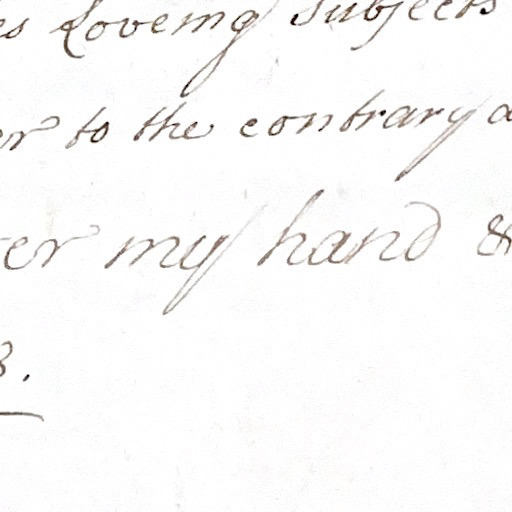 es Loveing Subjects
er to the contrary a
er my hand &
3.